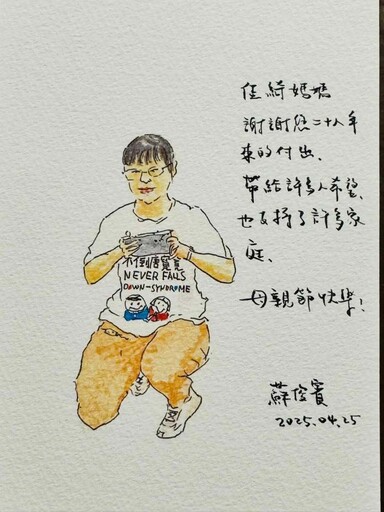 佳綺媽媽
謝謝您二十八年
來的付出、
帶給許多人希望、
也支持了許多家
庭、
母親節快樂！
蘇俊賓
2025.04.25
不倒翁寶寶
NEVER FALLS
DOWN-SYNDROME